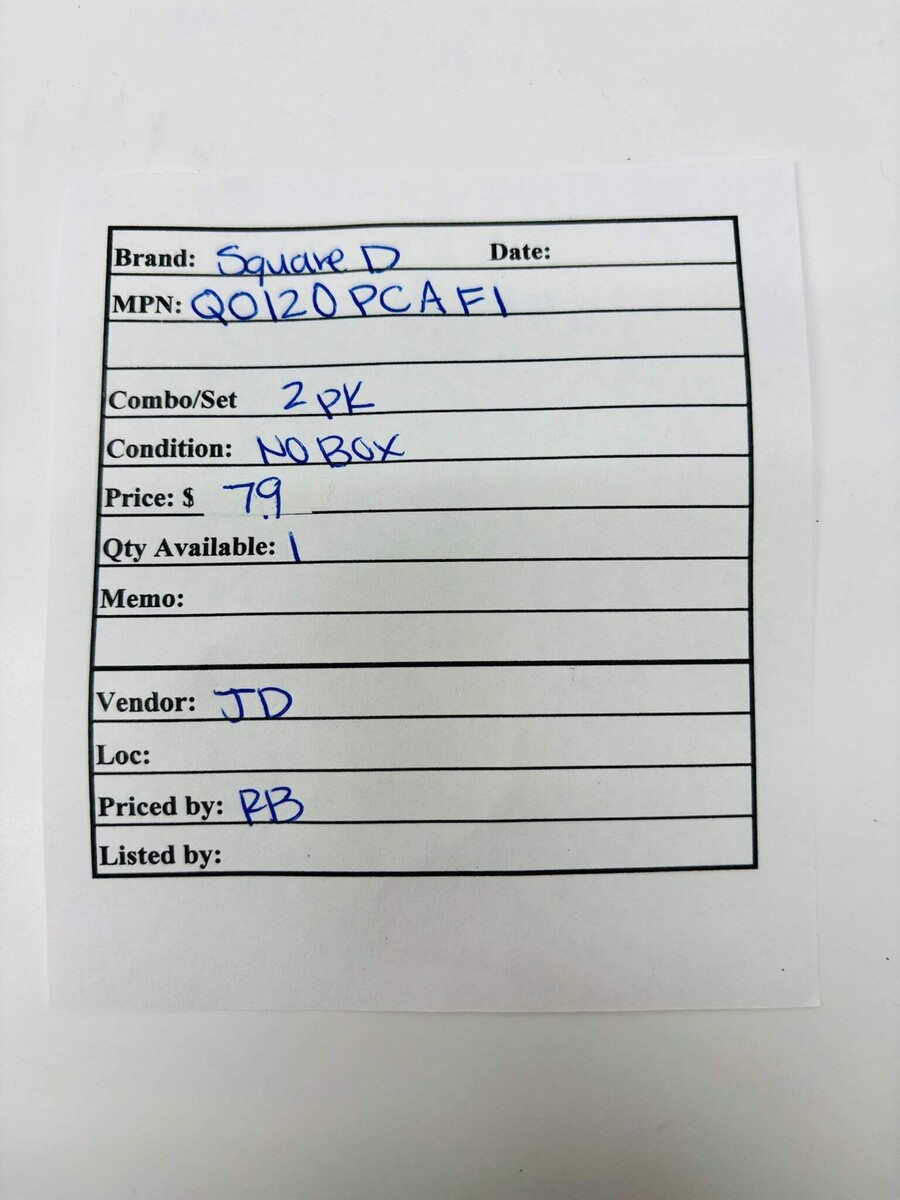 Brand: Square D Date:
MPN: QO120PCAFI
Combo/Set 2 PK
Condition: NO BOX
Price: $ 79
Qty Available: 1
Memo:
Vendor: JD
Loc:
Priced by: RB
Listed by: